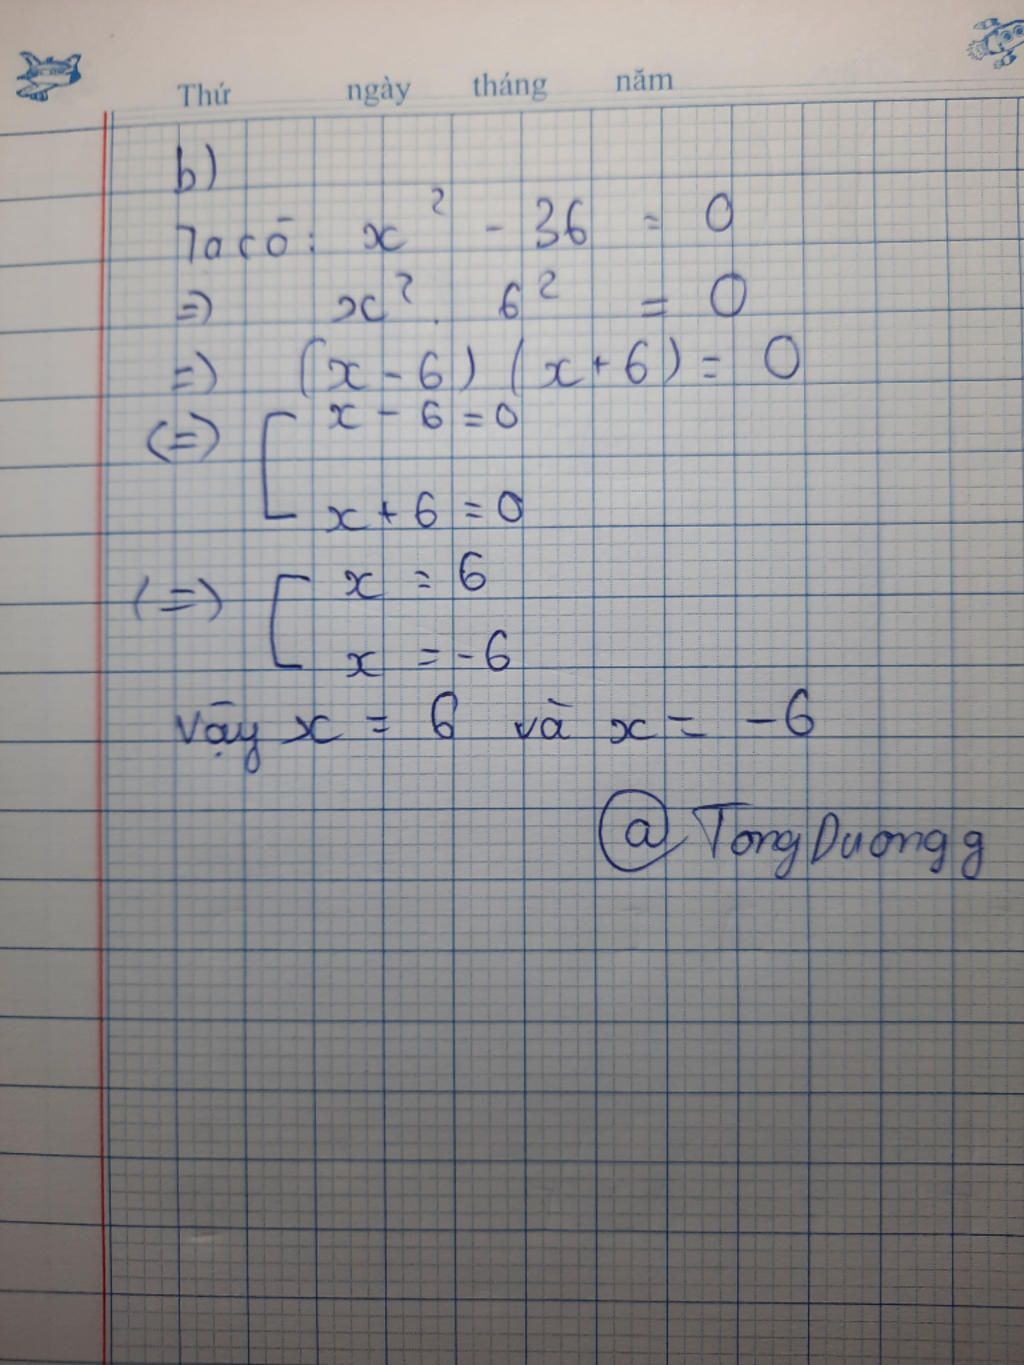 Thứ ngày tháng năm
b)
Ta có: x² - 36 = 0
=) x². 6² = 0
=) (x - 6) (x + 6) = 0
(=) [ x - 6 = 0
x + 6 = 0
(=) [ x = 6
x = -6
vậy x = 6 và x = -6
@TongDuongg